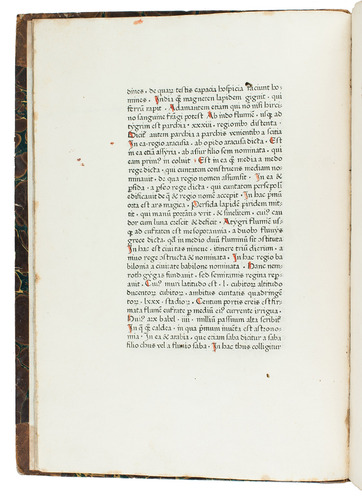 dines, de quar testis capacia hospicia faciunt ho-
mines. India q magnetem lapidem gignit, qui
ferrū rapit. Adamantem etiam qui no nisi hirci-
no sanguine frāgi potest. Ab indo flumē, usq ad
tygrim est parthia, xxxiii, regionibꝰ distenta.
Dicit autem parthia a parthis venientibꝰ a scitia
In ea aracusia, ab opido aracusa dicta. Est
in ea etiā assyria, ab assur filio sem nominata, qui
eam primꝰ in coluit. Est in ea q media a medo
rege dicta, qui ciuitatem construens mediam no-
minauit, de qua regio nomen assumsit. In ea &
psida, a pseo rege dicta, qui ciuitatem persepolī
edificauit de q & regio nomē accepit. In hac pmū
orta est ars magica. Persida lapidē piridem mit-
tit, qui manū portātis vrit, & sinelitem, cuiꝰ can-
dor cum luna crescit & deficit. A tygri flumīe us-
q ad eufraten est mesopotamia, a duobꝰ fluuijs
grece dicta, qd in medio duū fluminū sit ostituta
In hac est ciuitas niniue, itinere triū dierum, a
nino rege ostructa & nominata. In hac regio ba-
bilonia a ciuitate babilone nominata. Hanc nem-
roth gygas fundauit, sed semiramis regina repa-
rauit. Cuiꝰ muri latitudo est, l, cubitorꝰ altitudo
ducentorꝰ cubitorꝰ, ambitus ciuitatis quadringē-
torꝰ, lxxx, stadiorꝰ. Centum portis ereis est fir-
mata flumē eufrate p mediū eiꝰ currente irrigua.
Huiꝰ arx babel, iiii, milliū passuum alta scribit
In q caldea, in qua pmum inuēta est astrono-
mia. In ea & arabia, que etiam saba dicitur a saba
filio chus vel a fluuio saba. In hac thus colligitur